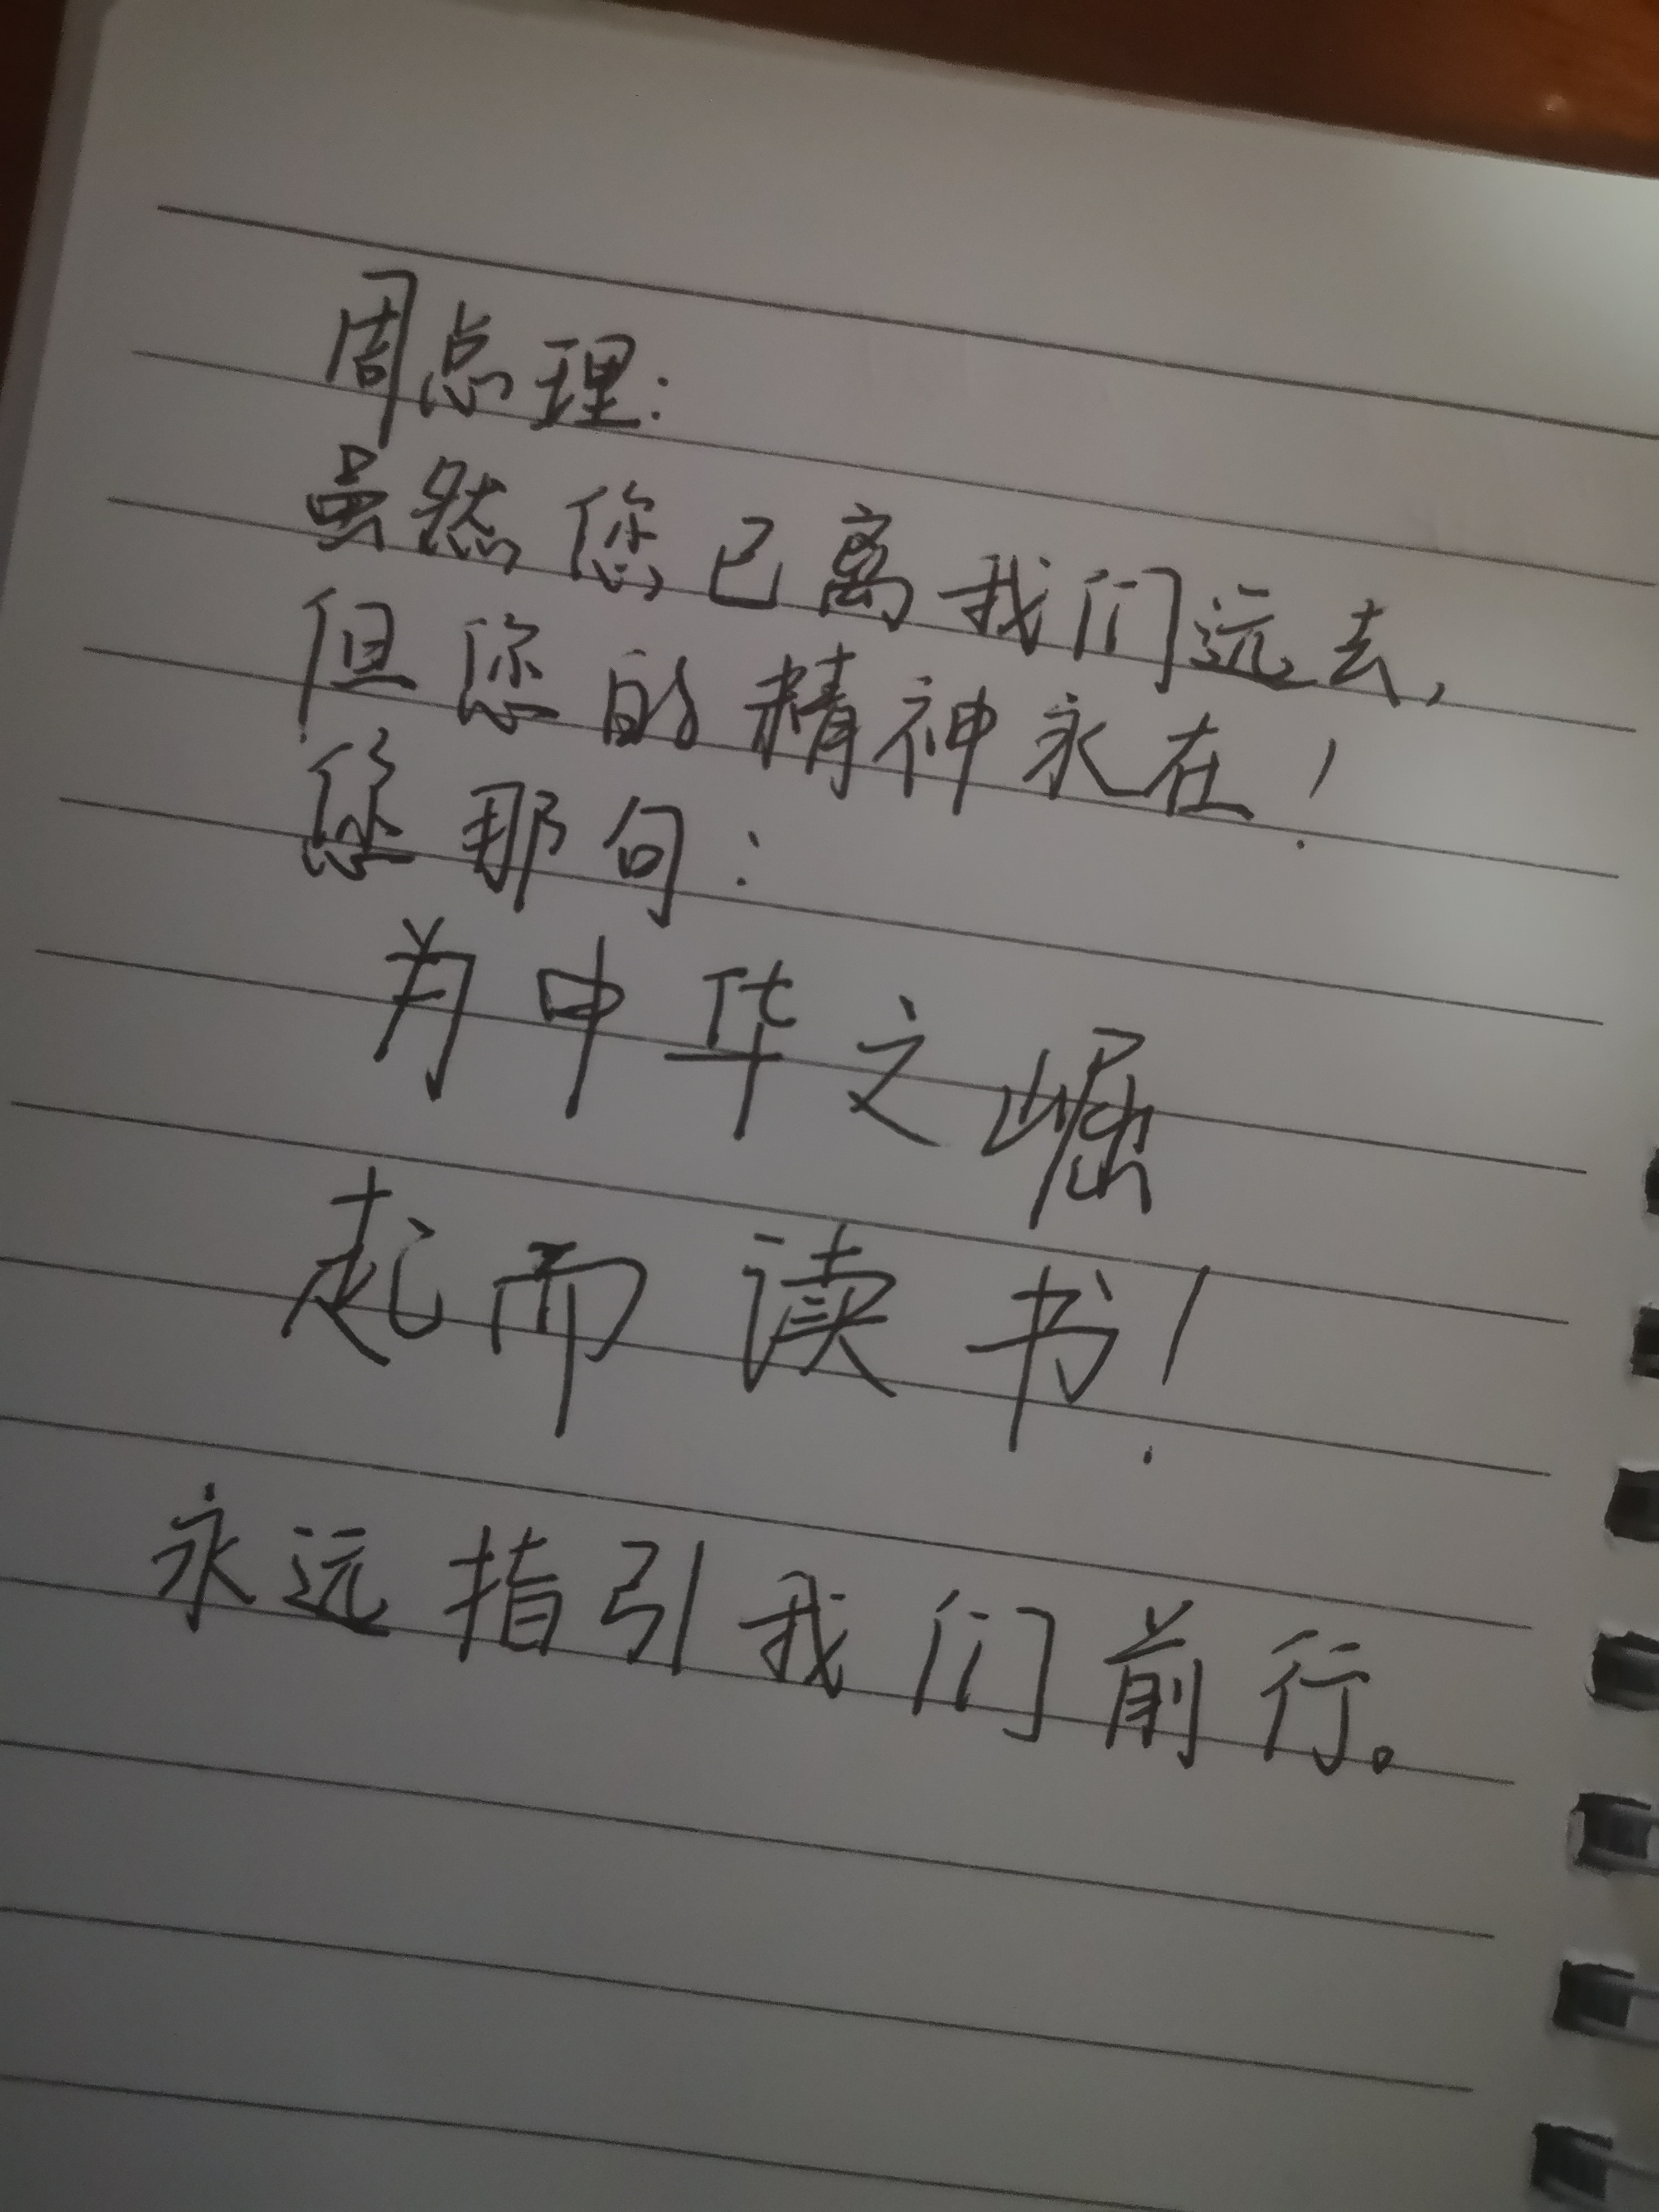 周总理：
虽然您已离我们远去，
但您的精神永在！
您那句：
为中华之崛
起而读书！
永远指引我们前行。